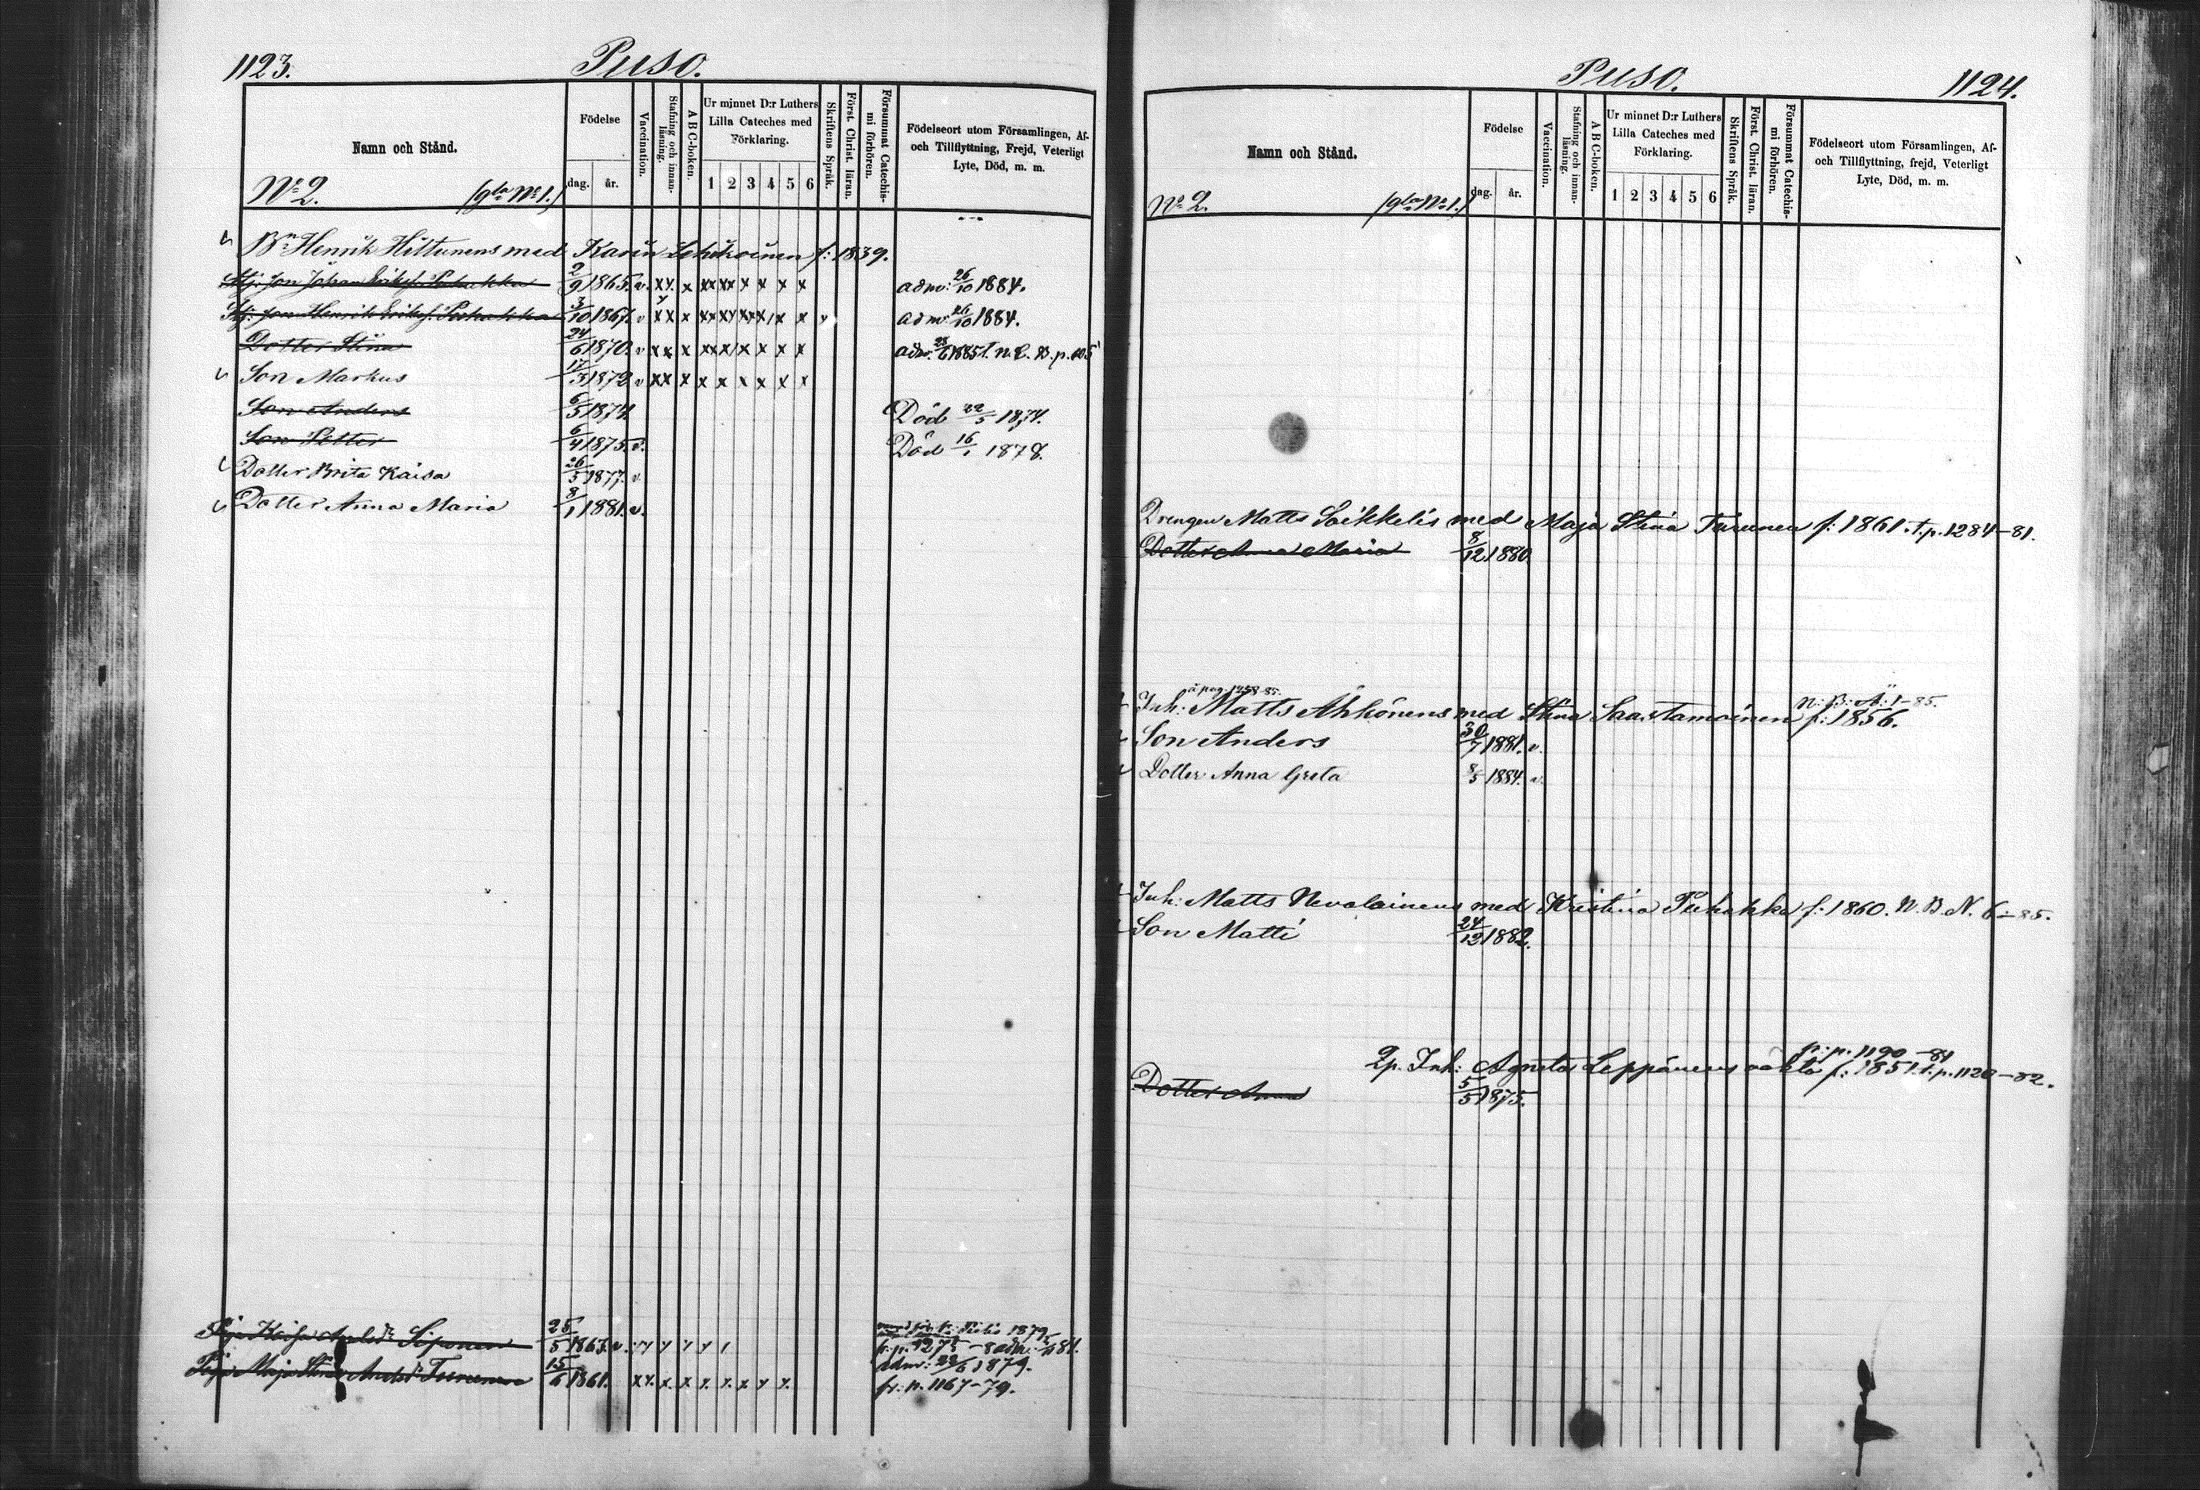 1123.
Puso.
Namn och Stånd.
Födelse
dag. år.
Vaccination.
Stafning och innanläsning.
A B C-boken.
Ur minnet D:r Luthers
Lilla Cateches med
Förklaring.
1 2 3 4 5 6
Skriftens Språk.
Först. Christ. läran.
Försummat Catechismi förhören.
Födelseort utom Församlingen, Af-
och Tillflyttning, Frejd, Veterligt
Lyte, Död, m. m.
No 2. (gla No 1.)
Bn Henrik Hiltunens med Karin Lehikoinen f: 1839.
Stj. son Johan Eriksf. Puhakka 2/9 1865. v. xx x xx xx x x x x adm: 26/10 1884.
Stj. son Henrik Eriksf. Puhakka 3/10 1867. v xx x adm: 26/10 1884.
Dotter Stina 24/6 1870. v xx x adm. 1885 t. n. C. B. p.
Son Markus 17/3 1872 v xx x x x x x x x
Son Anders 6/5 1874. Död 22/5 1874.
Son Petter 6/4 1875. v. Död 16/1 1878.
Dotter Brita Kaisa 26/5 1877. v.
Dotter Anna Maria 8/1 1881. v.
Siponen 25/5 1863. v. 1879
Piga Maja Stina Andsdr Turunen 15/6 1861. adm: 1879.
fr: p. 1167-79.
Puso.
1124.
Namn och Stånd.
Födelse
dag. år.
Vaccination.
Stafning och innanläsning.
A B C-boken.
Ur minnet D:r Luthers
Lilla Cateches med
Förklaring.
1 2 3 4 5 6
Skriftens Språk.
Först. Christ. läran.
Försummat Catechismi förhören.
Födelseort utom Församlingen, Af-
och Tillflyttning, frejd, Veterligt
Lyte, Död, m. m.
No 2. (gla No 1.)
Drengen Matts Soikkelis med Maja Stina Turunen f: 1861. t. p. 1284-81.
Dotter Anna Maria 8/12 1880.
Inh: Matts Ahkönens med Stina Saastamoinen f: 1856.
Son Anders 30/7 1881. v.
Dotter Anna Greta 8/5 1884. v.
Inh: Matts Nevalainens med Kristina Puhakka f: 1860. N. B. N. 6-85.
Son Matti 24/12 1882.
fr: p. 1190-81
Inh: Agneta Leppänens oäkta f: 1851. t. p. 1120-82.
Dotter Anna 5/5 1875.